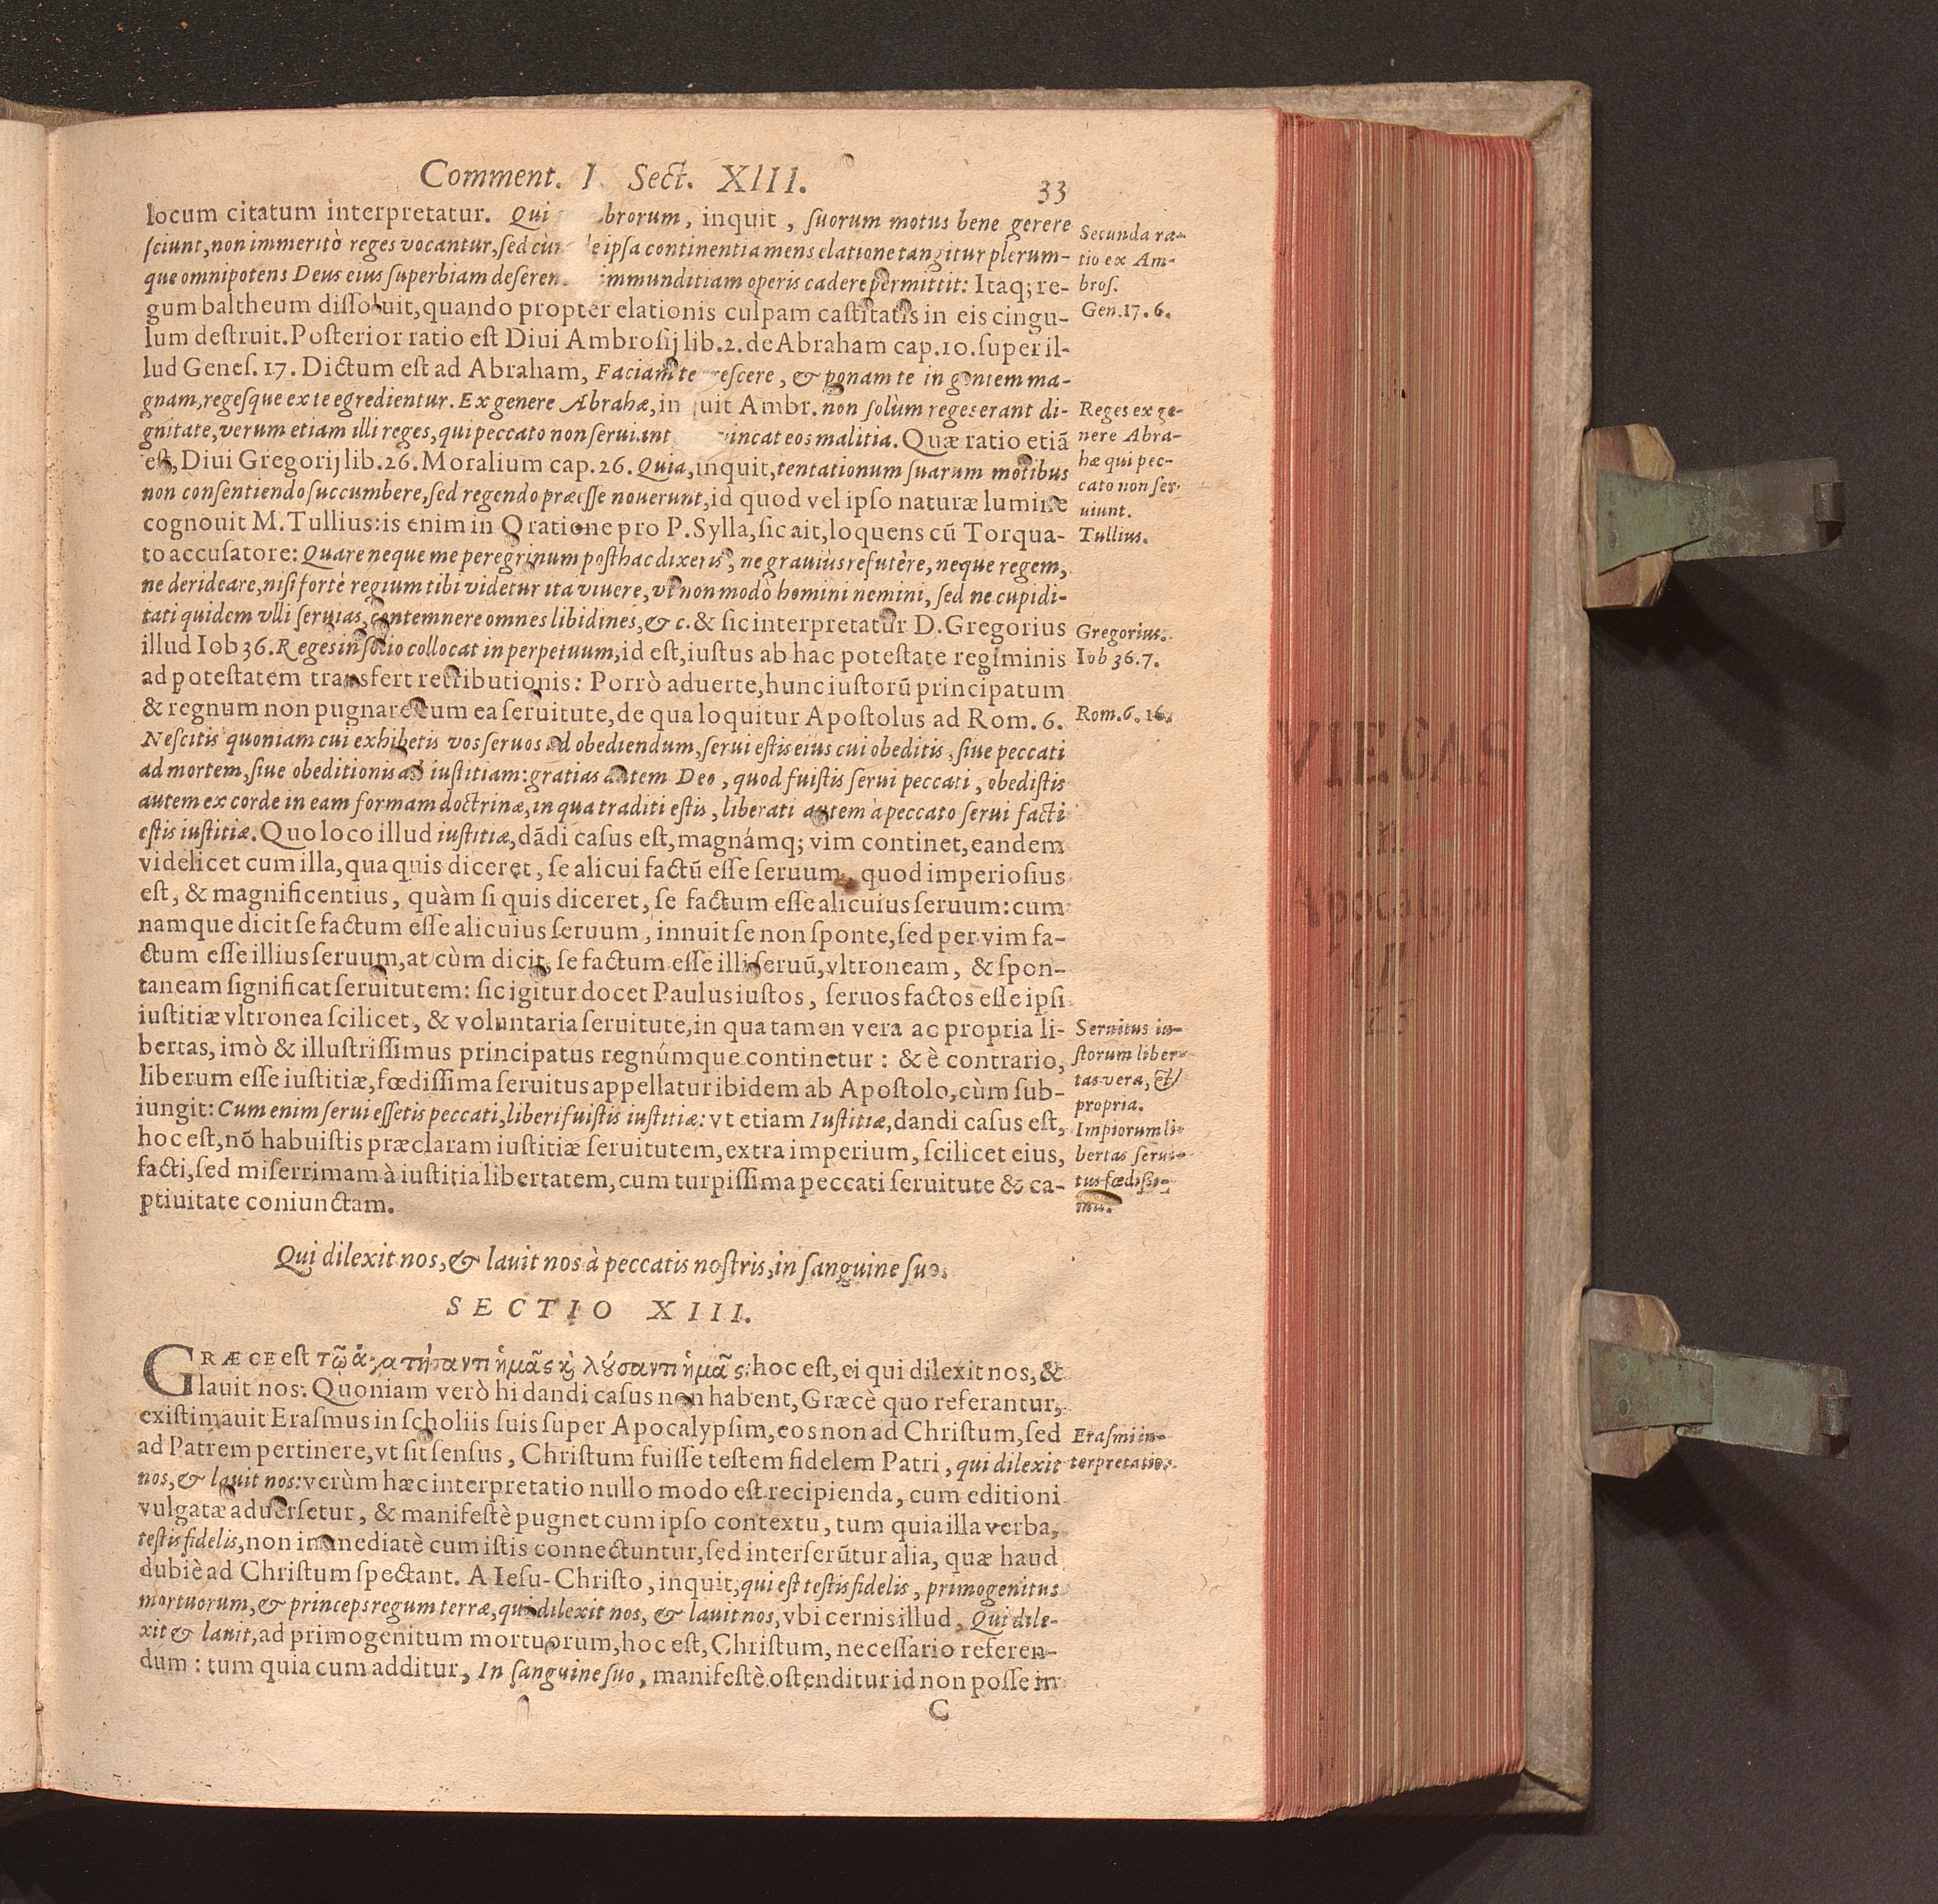 Comment. I. Sect. XIII. 33
locum citatum interpretatur. Qui brorum, inquit, suorum motus bene gerere
sciunt, non immeritò reges vocantur, sed cùm de ipsa continentia mens elatione tangitur plerum-
que omnipotens Deus eius superbiam deseren immunditiam operis cadere permittit: Itaq; re-
gum baltheum dissoluit, quando propter elationis culpam castitatis in eis cingu-
lum destruit. Posterior ratio est Diui Ambrosij lib. 2. de Abraham cap. 10. super il-
lud Genes. 17. Dictum est ad Abraham, Faciam te crescere, & ponam te in gentem ma-
gnam, regesque ex te egredientur. Ex genere Abrahæ, inquit Ambr. non solùm reges erant di-
gnitate, verum etiam illi reges, qui peccato non seruiunt vincat eos malitia. Quæ ratio etiã
est, Diui Gregorij lib. 26. Moralium cap. 26. Quia, inquit, tentationum suarum motibus
non consentiendo succumbere, sed regendo præesse nouerunt, id quod vel ipso naturæ lumine
cognouit M. Tullius: is enim in Oratione pro P. Sylla, sic ait, loquens cũ Torqua-
to accusatore: Quare neque me peregrinum posthac dixeris, ne grauiùs refutêre, neque regem,
ne derideare, nisi fortè regium tibi videtur ita viuere, vt non modò homini nemini, sed ne cupidi-
tati quidem vlli seruias, contemnere omnes libidines, & c. & sic interpretatur D. Gregorius
illud Iob 36. Reges in solio collocat in perpetuum, id est, iustus ab hac potestate regiminis
ad potestatem transfert retributionis: Porrò aduerte, hunc iustorũ principatum
& regnum non pugnare cum ea seruitute, de qua loquitur Apostolus ad Rom. 6.
Nescitis quoniam cui exhibetis vos seruos ad obediendum, serui estis eius cui obeditis, siue peccati
ad mortem, siue obeditionis ad iustitiam: gratias autem Deo, quod fuistis serui peccati, obedistis
autem ex corde in eam formam doctrinæ, in qua traditi estis, liberati autem à peccato serui facti
estis iustitiæ. Quo loco illud iustitiæ, dãdi casus est, magnámq; vim continet, eandem
videlicet cum illa, qua quis diceret, se alicui factũ esse seruum, quod imperiosius
est, & magnificentius, quàm si quis diceret, se factum esse alicuius seruum: cum
namque dicit se factum esse alicuius seruum, innuit se non sponte, sed per vim fa-
ctum esse illius seruum, at cùm dicit, se factum esse illi seruũ, vltroneam, & spon-
taneam significat seruitutem: sic igitur docet Paulus iustos, seruos factos esse ipsi
iustitiæ vltronea scilicet, & voluntaria seruitute, in qua tamen vera ac propria li-
bertas, imò & illustrissimus principatus regnúmque continetur: & è contrario,
liberum esse iustitiæ, fœdissima seruitus appellatur ibidem ab Apostolo, cùm sub-
iungit: Cum enim serui essetis peccati, liberi fuistis iustitiæ: vt etiam Iustitiæ, dandi casus est,
hoc est, nõ habuistis præclaram iustitiæ seruitutem, extra imperium, scilicet eius,
facti, sed miserrimam à iustitia libertatem, cum turpissima peccati seruitute & ca-
ptiuitate coniunctam.
Secunda ra-
tio ex Am-
bros.
Gen. 17. 6.
Reges ex ge-
nere Abra-
hæ qui pec-
cato non ser-
uiunt.
Tullius.
Gregorius.
Iob 36. 7.
Rom. 6. 16.
Seruitus iu-
storum liber-
tas vera, &
propria.
Impiorum li-
bertas serui-
tus fœdissi-
ma.
Qui dilexit nos, & lauit nos à peccatis nostris, in sanguine suo.
SECTIO XIII.
GRÆCE est τῶ ἀγαπήσαντι ἡμᾶς ϗ λύσαντι ἡμᾶς: hoc est, ei qui dilexit nos, &
lauit nos: Quoniam verò hi dandi casus non habent, Græcè quo referantur,
existimauit Erasmus in scholiis suis super Apocalypsim, eos non ad Christum, sed
ad Patrem pertinere, vt sit sensus, Christum fuisse testem fidelem Patri, qui dilexit
nos, & lauit nos: verùm hæc interpretatio nullo modo est recipienda, cum editioni
vulgatæ aduersetur, & manifestè pugnet cum ipso contextu, tum quia illa verba,
testis fidelis, non immediatè cum istis connectuntur, sed interserũtur alia, quæ haud
dubiè ad Christum spectant. A Iesu-Christo, inquit, qui est testis fidelis, primogenitus
mortuorum, & princeps regum terræ, qui dilexit nos, & lauit nos, vbi cernis illud, Qui dile-
xit & lauit, ad primogenitum mortuorum, hoc est, Christum, necessario referen-
dum: tum quia cum additur, In sanguine suo, manifestè ostenditur id non posse in
Erasmi in-
terpretatio.
C
VIEGAS
In
Apocalypsi